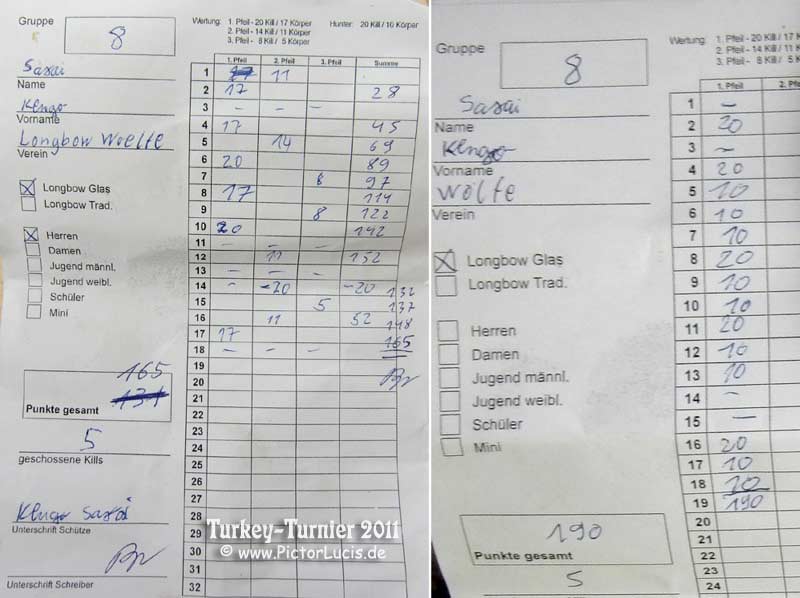 Gruppe 8
Wertung: 1. Pfeil - 20 Kill / 17 Körper Hunter: 20 Kill / 10 Körper
2. Pfeil - 14 Kill / 11 Körper
3. Pfeil - 8 Kill / 5 Körper
Sasai
Name
Kengo
Vorname
Longbow Woelfe
Verein
Longbow Glas
Longbow Trad.
Herren
Damen
Jugend männl.
Jugend weibl.
Schüler
Mini
165
Punkte gesamt 131
5
geschossene Kills
Kengo Sasai
Unterschrift Schütze
Unterschrift Schreiber
1. Pfeil 2. Pfeil 3. Pfeil Summe
1 17 11
2 17 28
3 - - -
4 17 45
5 14 69
6 20 89
7 8 97
8 17 114
9 8 122
10 20 142
11 - - -
12 11 152
13 - - -
14 - -20 -20 132
15 5 137
16 11 52 148
17 17 165
18 - - -
19
20
21
22
23
24
25
26
27
28
29
30
31
32
Turkey-Turnier 2011
© www.PictorLucis.de
Gruppe 8
Wertung: 1. Pfeil - 20 Kill / 17 K
2. Pfeil - 14 Kill / 11
3. Pfeil - 8 Kill / 5
Sasai
Name
Kengo
Vorname
Wölfe
Verein
Longbow Glas
Longbow Trad.
Herren
Damen
Jugend männl.
Jugend weibl.
Schüler
Mini
190
Punkte gesamt
5
1. Pfeil 2. Pf
1 -
2 20
3 -
4 20
5 10
6 10
7 10
8 20
9 10
10 10
11 20
12 10
13 10
14 -
15 -
16 20
17 10
18 10
19 190
20
21
22
23
24